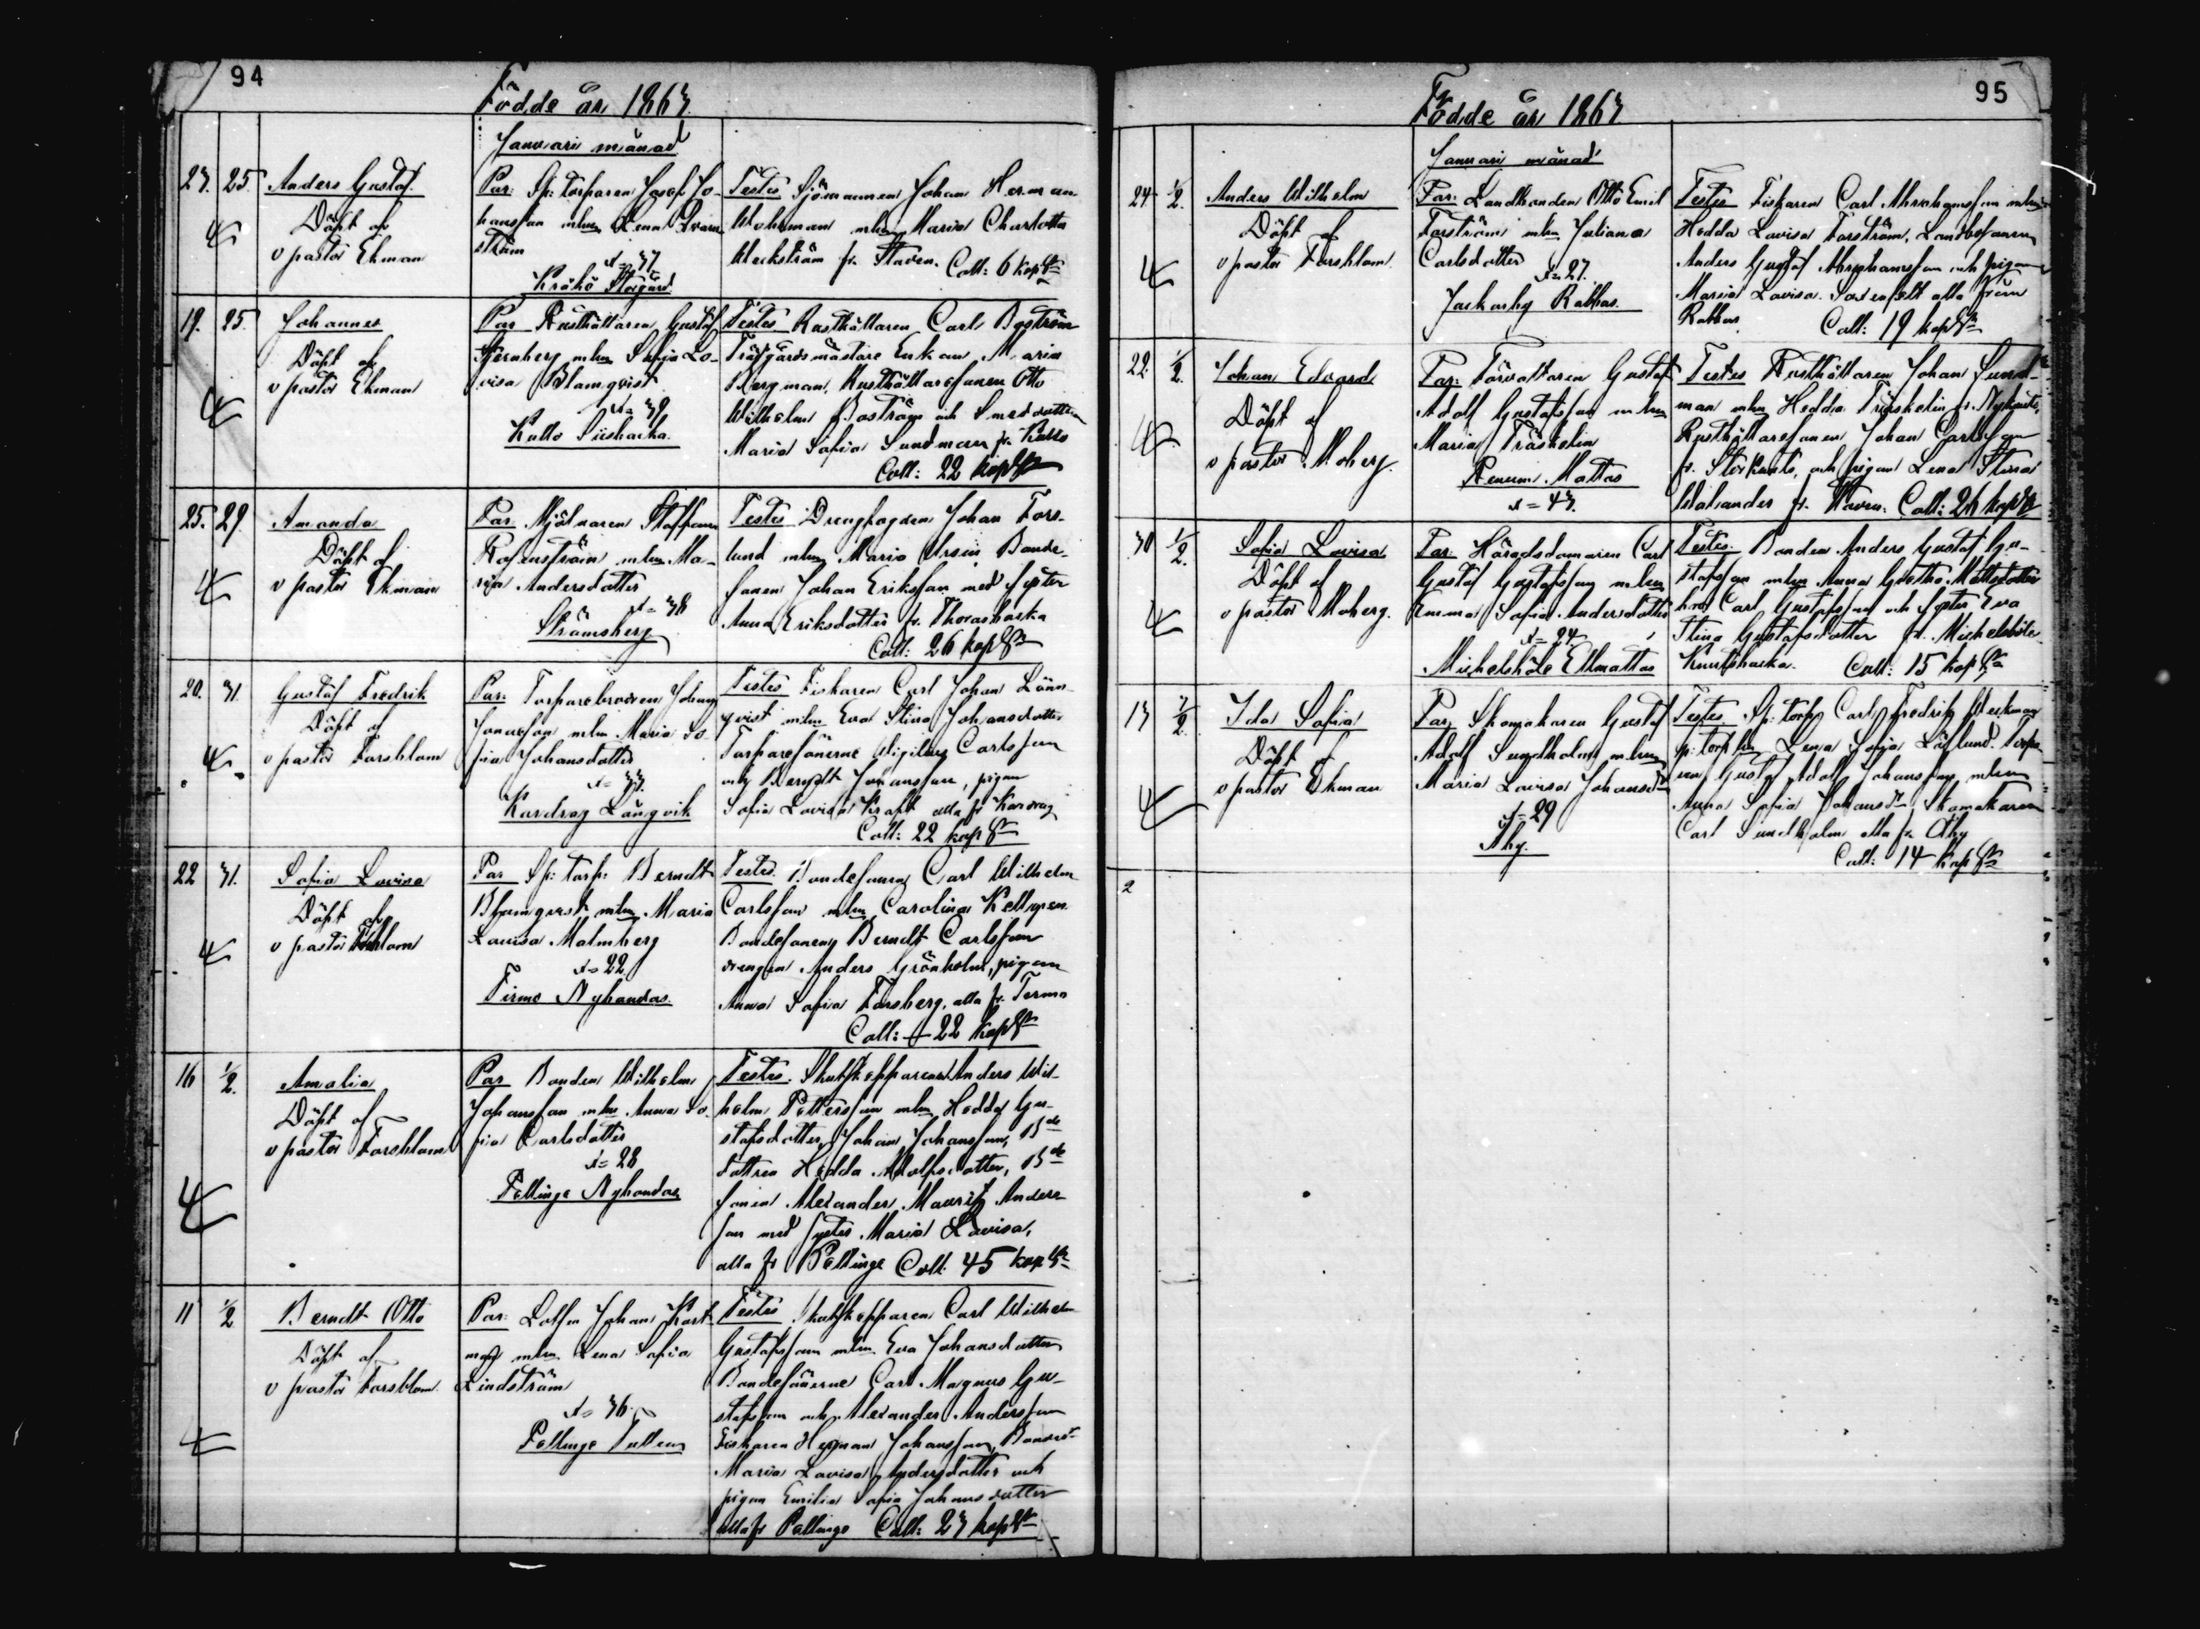 94
Födde år 1863.
Januari månad
23. 25. Anders Gustaf.
Döpt af
v pastor Ekman
Par: Sp: torparen Josef Jo-
hansson m hu Lena Qvarn
ström
x = 37
Kråkö Storgård
Testes Sjömannen Johan Herman
Wohlman m hu Maria Charlotta
Weckström fr. Staden. Coll: 6 kop Sr
19. 25. Johannes
Döpt af
v pastor Ekman
Par Rusthållaren Gustaf
Stjernberg m hu Sofia Lo-
visa Blomqvist
x = 39
Kullo Siisbacka.
Testes Rusthållaren Carl Boström
Trädgårdsmästare Enkan Maria
Bergman, Rusthållaresonen Otto
Wilhelm Boström och Smedsdottren
Maria Sofia Sundman fr. Kullo
Coll: 22 kop Sr
25. 29. Amanda
Döpt af
v pastor Ekman
Par Mjölnaren Staffan
Rosenström m hu Ma-
ria Andersdotter
x = 38
Strömsberg
Testes Drengfogden Johan Fors-
lund m hu Maria Ursin Bonde-
sonen Johan Eriksson med syster
Anna Eriksdotter fr. Thorasbacka
Coll: 26 kop Sr
20. 31. Gustaf Fredrik
Döpt af
v pastor Forsblom
Par: Torparebrodren Johan
Jonasson m hu Maria So-
fia Johansdotter
x = 33.
Kardrag Långvik
Testes Fiskaren Carl Johan Lönn-
qvist m hu Eva Stina Johansdotter
Torparesönerne Wigilius Carlsson
och Berndt Johansson, pigan
Sofia Lovisa Kraft alla fr Kardrag
Coll: 22 kop Sr
22 31. Sofia Lovisa
Döpt af
v pastor
Par Sp: torp: Berndt
Blomqvist m hu Maria
Lovisa Malmberg
x = 22
Tirmo Nybondas.
Testes Bondesonen Carl Wilhelm
Carlsson m hu Carolina Kellgren
Bondesonen Berndt Carlsson
drengen Anders Grönholm, pigan
Anna Sofia Forsberg. alla fr. Termo
Coll: 22 kop Sr
16 1/2. Amalia
Döpt af
v pastor Forsblom
Par Bonden Wilhelm
Johansson m hu Anna So-
fia Carlsdotter
x = 28
Pellinge Nybondas
Testes. Skutskepparen Anders Wil-
helm Pettersson m hu Hedda Gu-
stafsdotter, Johan Johansson, Bde
dottren Hedda Adolfsdotter, Bde
sonen Alexander Mauritz Anders-
son med syster Maria Lovisa,
alla fr Pellinge Coll. 45 kop Sr
11 1/2 Berndt Otto
Döpt af
v pastor Forsblom.
Par: Lotsen Johan Kort-
man m hu Lena Sofia
Lindström
x = 36.
Pellinge Tullen
Testes Skutskepparen Carl Wilhelm
Gustafsson m hu Eva Johansdotter
Bondesönerne Carl Magnus Gu-
stafsson och Alexander Andersson
Fiskaren Herman Johansson, Bonded
Maria Lovisa Andersdotter och
pigan Emilia Sofia Johansdotter
alla fr Pellinge Coll: 23 kop Sr
95
Födde år 1863
Januari månad
24 1/2. Anders Wilhelm
Döpt af
v pastor Forsblom.
Par: Landbonden Otto Emil
Forström m hu Juliana
Carlsdotter
x = 27.
Jackarby Rabbas.
Testes Fiskaren Carl Abrahamsson m hu
Hedda Lovisa Forström, Landbosonen
Anders Gustaf Abrahamsson och pigan
Maria Lovisa alla från
Rabbas. Coll: 19 kop Sr
22 1/2. Johan Edvard
Döpt af
v pastor Moberg.
Par: Förvaltaren Gustaf
Adolf Gustafsson m hu
Maria Träskelin
Renum Mattas
x = 43.
Testes Rusthållaren Johan Sund-
man m hu Hedda Träskelin fr.
Rusthållaresonen Johan Carlsson
fr. och pigan Lena Stina
Walander fr. Staden. Coll: 26 kop Sr
30 1/2. Sofia Lovisa
Döpt af
v pastor Moberg.
Par: Häradsdomaren Carl
Gustaf Gustafsson m hu
Emma Sofia Andersdotter
x = 24
Mickelsböle Ellmattas
Testes. Bonden Anders Gustaf Gu-
stafsson m hu Anna Greetha Mattsdotter
bror Carl Gustafsson och syster Eva
Stina Gustafsdotter fr. Mickelsböle
Knutsbacka. Coll: 15 kop Sr
13 1/2. Ida Sofia
Döpt af
v pastor Ekman
Par Skomakaren Gustaf
Adolf Sundholm m hu
Maria Lovisa Johansdr
x = 29
Åby.
Testes Sp: torp Carl Fredrik Weckman
sp: torp hu Lena Sofia Löflund. Torpa-
ren Gustaf Adolf Johansson m hu
Anna Sofia Johansdr Skomakaren
Carl Sundholm alla fr. Åby
Coll: 14 kop Sr
2